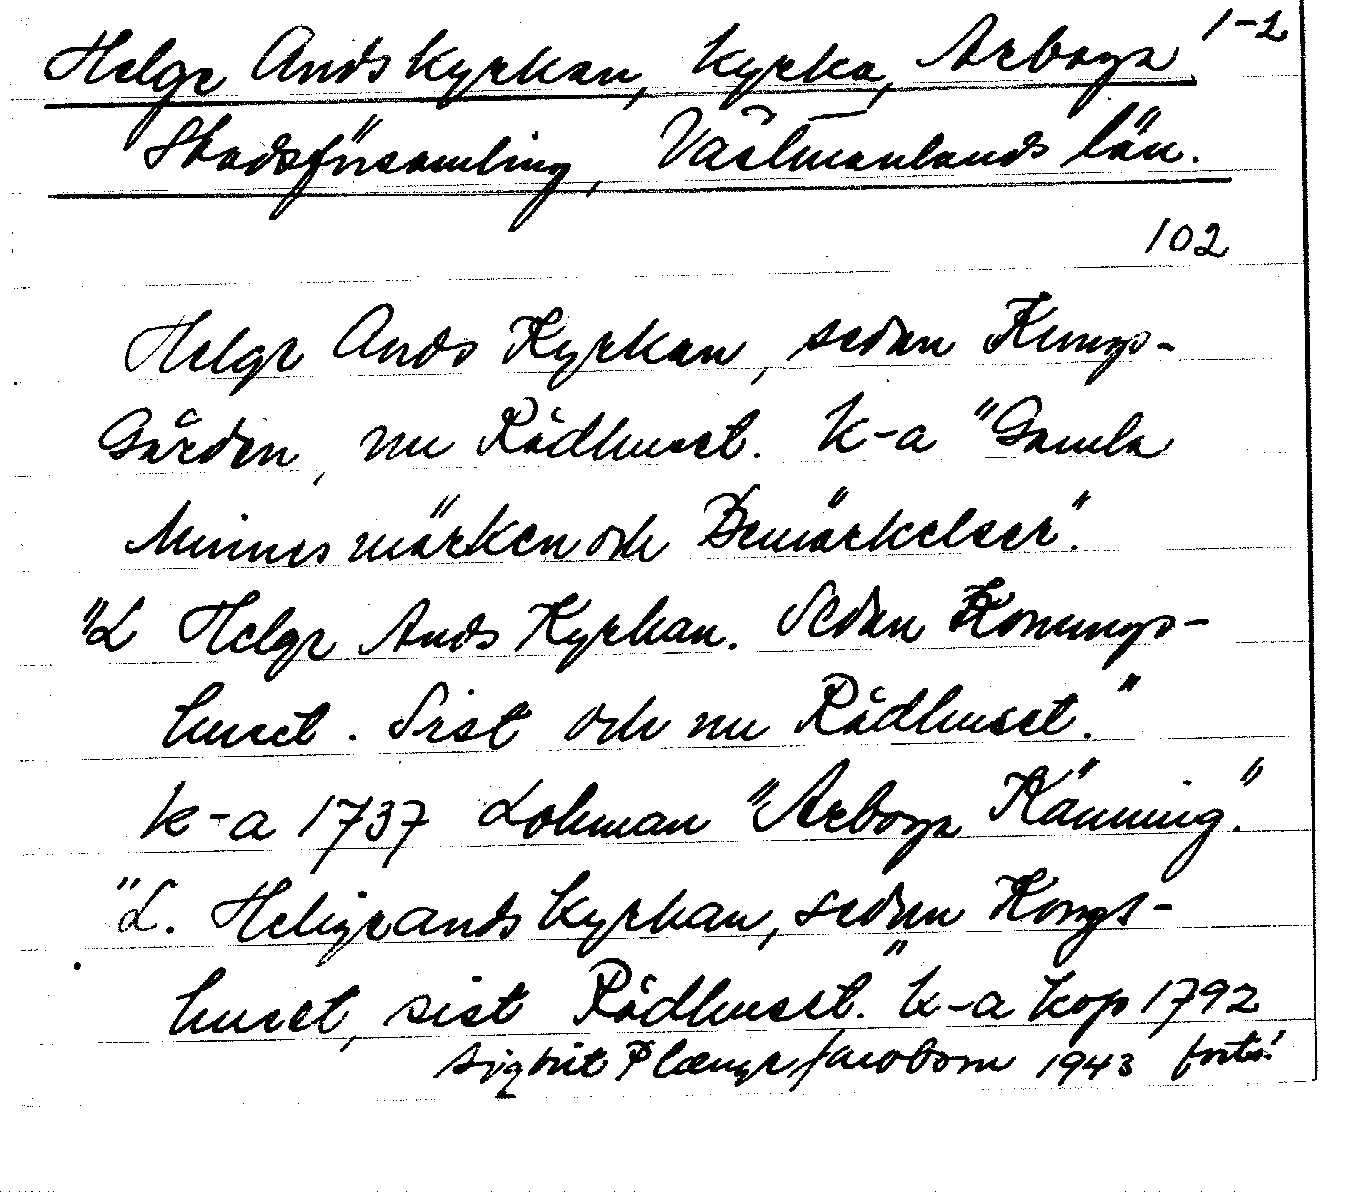 Helge Andskyrkan, kyrka, Arboga 1-2
Stadsförsamling, Västmanlands län.
102
Helge Ands Kyrkan, sedan Kungs-
Gården, nu Rådhuset. k-a "Gamla
Minnesmärken och Bemärkelser".
"L Helge Ands Kyrkan. Sedan Konungs-
huset. Sist och nu Rådhuset."
k-a 1737 Lohman "Arboga Känning".
"L. Heligeandskyrkan, sedan Kongs-
huset, sist Rådhuset." k-a kop 1792
Sigbrit Plænge Jacobson 1943 forts!